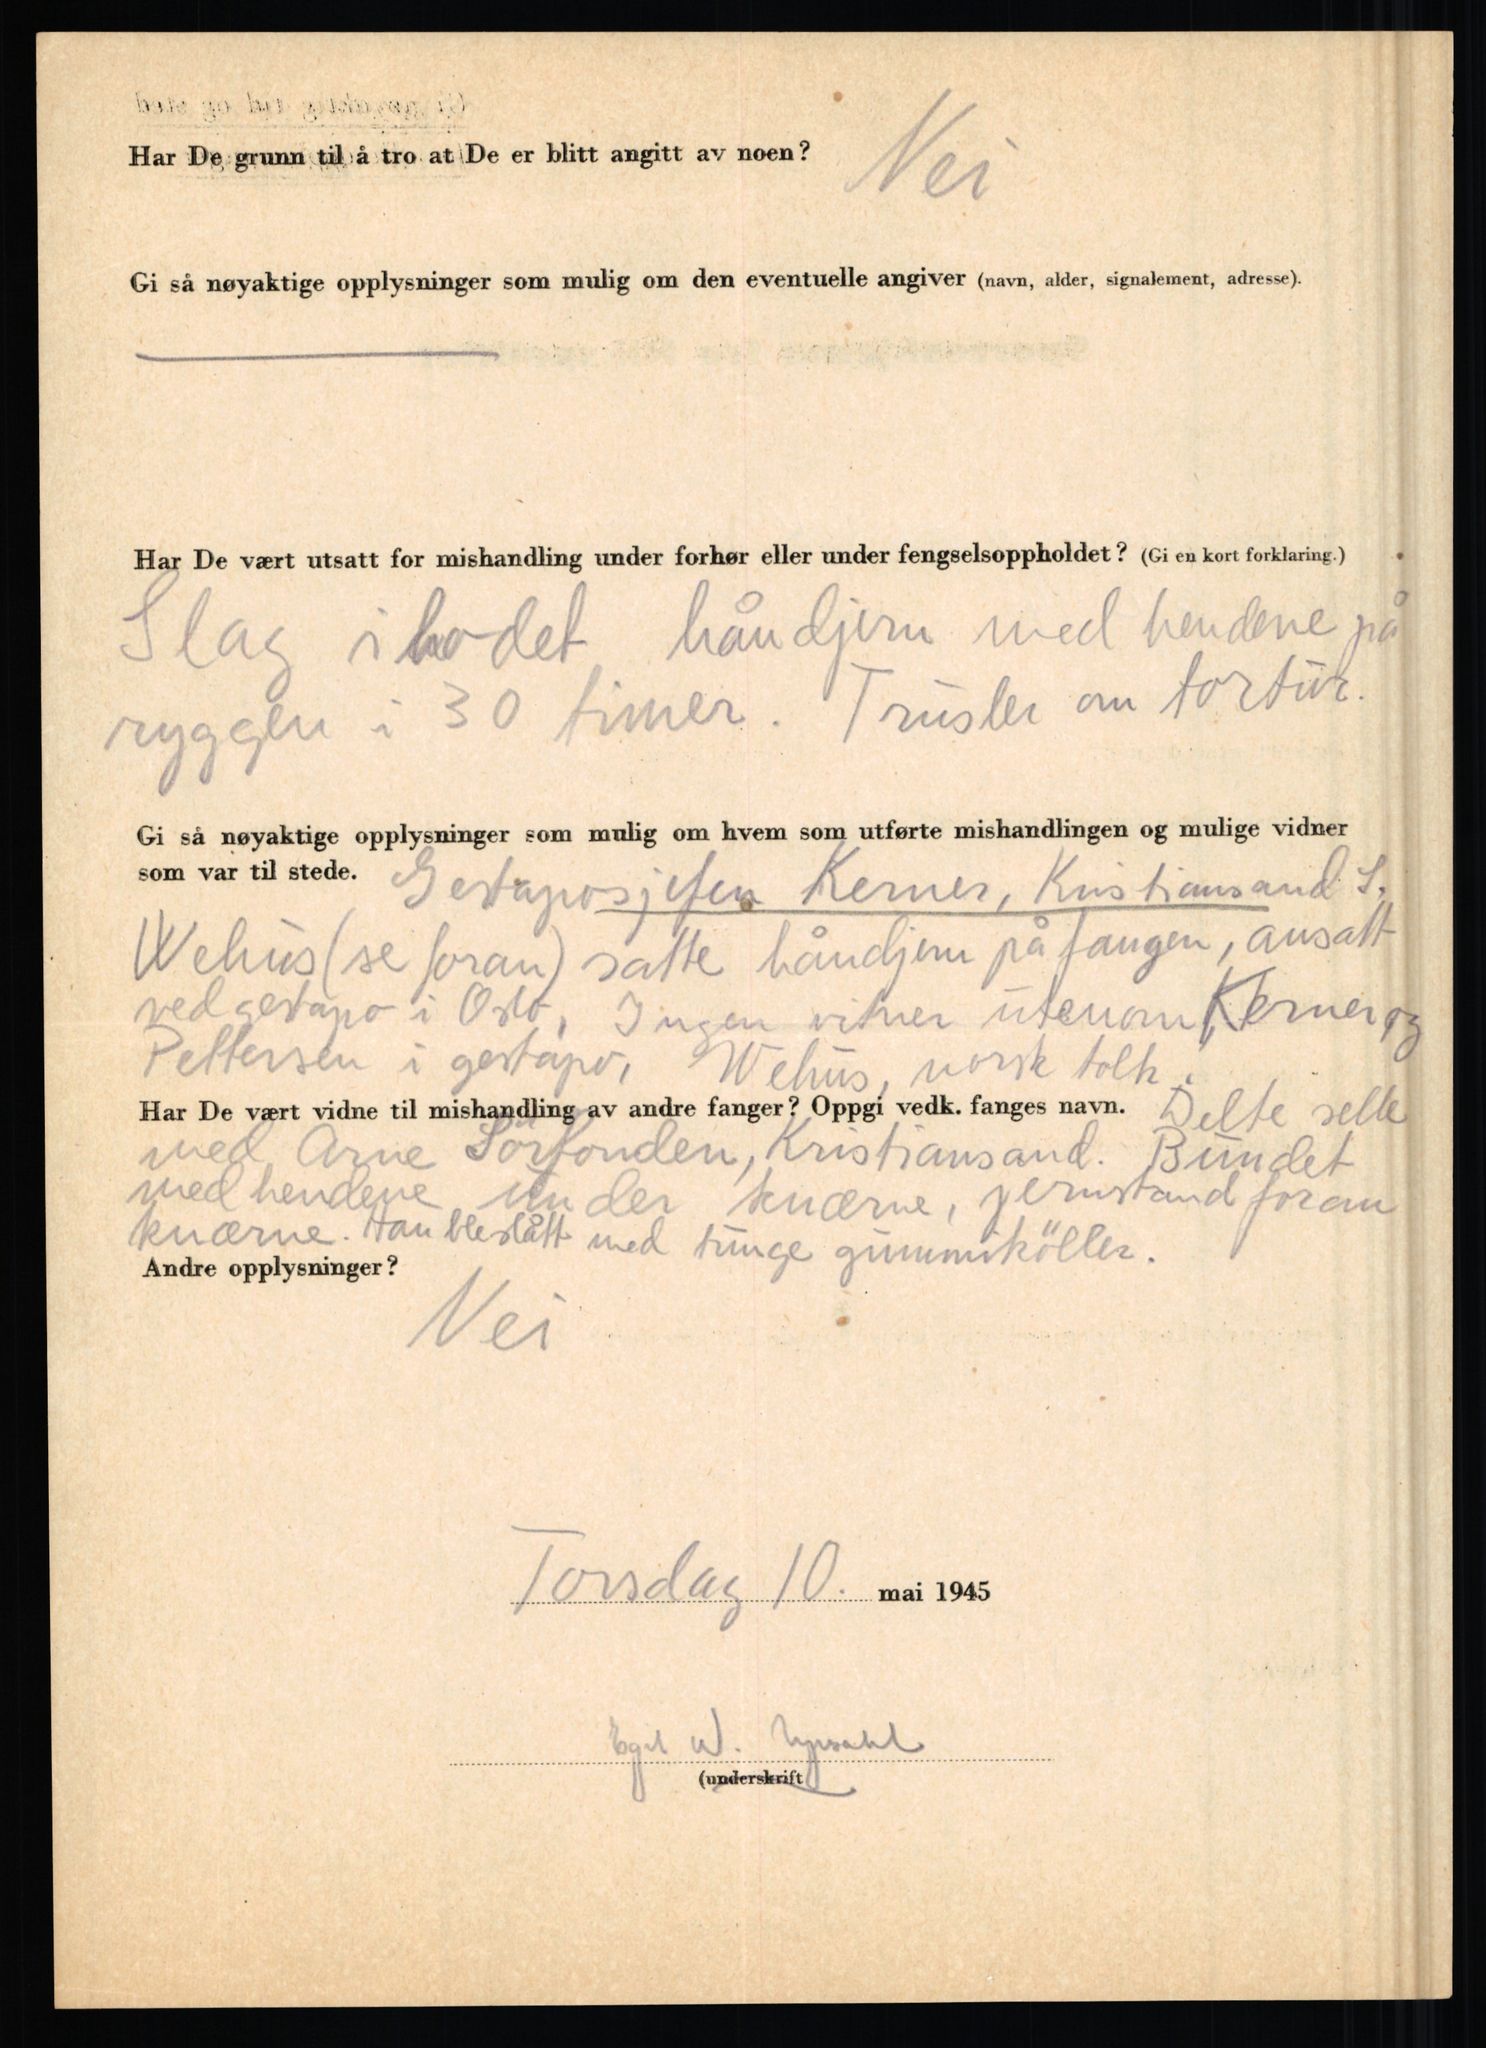 Har De grunn til å tro at De er blitt angitt av noen? Nei
Gi så nøyaktige opplysninger som mulig om den eventuelle angiver (navn, alder, signalement, adresse).
Har De vært utsatt for mishandling under forhør eller under fengselsoppholdet? (Gi en kort forklaring.)
Slag i hodet håndjern med hendene på
ryggen i 30 timer. Trusler om tortur.
Gi så nøyaktige opplysninger som mulig om hvem som utførte mishandlingen og mulige vidner
som var til stede. Gestaposjefen Kerner, Kristiansand S.
Wehus (se foran) satte håndjern på fangen, ansatt
ved gestapo i Oslo, Ingen vitner utenom Kerner og
Pettersen i gestapo, Wehus, norsk tolk.
Har De vært vidne til mishandling av andre fanger? Oppgi vedk. fanges navn. Delte selle
med Arne Sörfonden, Kristiansand. Bundet
med hendene under knærne, jernstand foran
knærne. Han ble slått med tunge gummikøller.
Andre opplysninger?
Nei
Torsdag 10. mai 1945
Egil W.
(underskrift)